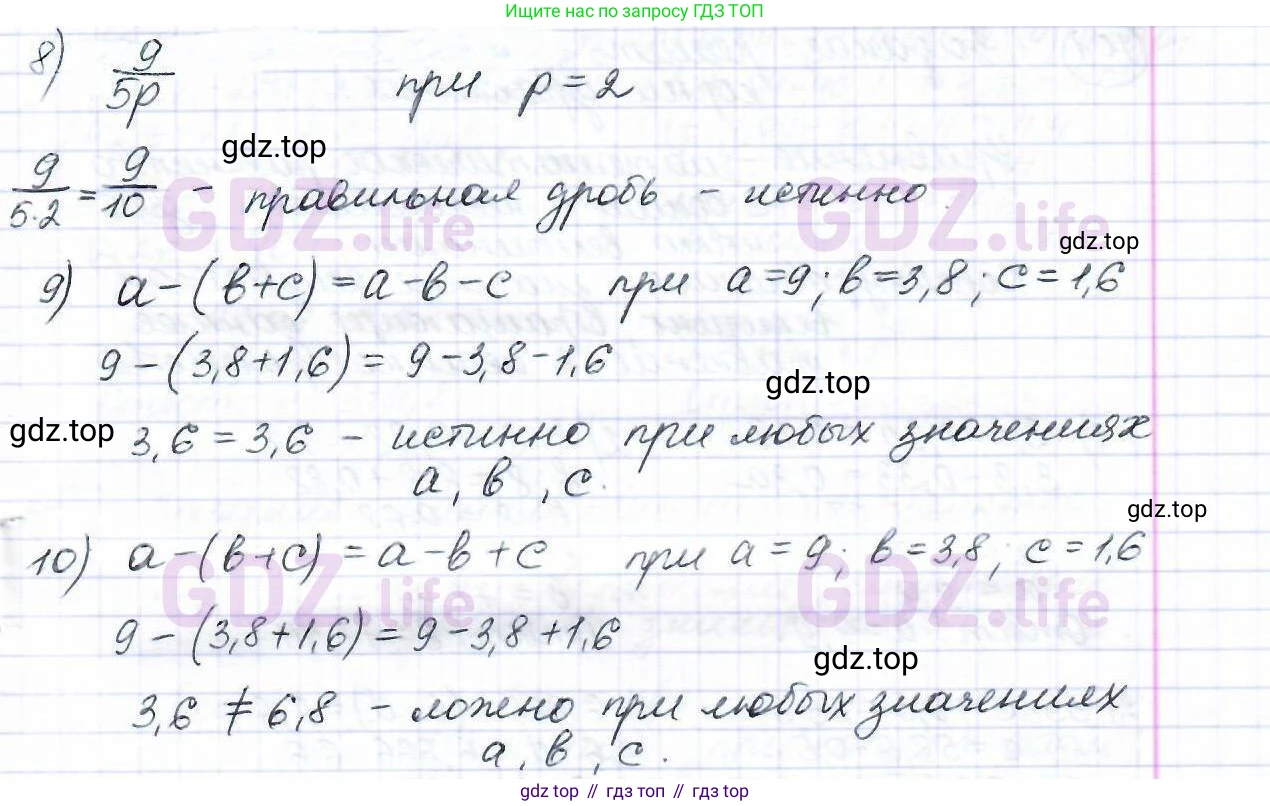 Ищите нас по запросу ГДЗ ТОП
8) 9/5p при p = 2
gdz.top
9/5·2 = 9/10 – правильная дробь – истинно.
GDZ.life GDZ.life
gdz.top
9) a – (в+с) = a – в – с при a = 9; в = 3,8; с = 1,6
9 – (3,8+1,6) = 9 – 3,8 – 1,6
gdz.top
gdz.top
3,6 = 3,6 – истинно при любых значениях
a, в, с.
gdz.top
10) a – (в+с) = a – в + с при a = 9; в = 3,8; с = 1,6
GDZ.life GDZ.life
9 – (3,8+1,6) = 9 – 3,8 + 1,6
gdz.top
3,6 ≠ 6,8 – ложно при любых значениях
a, в, с.
gdz top // гдз топ // gdz top